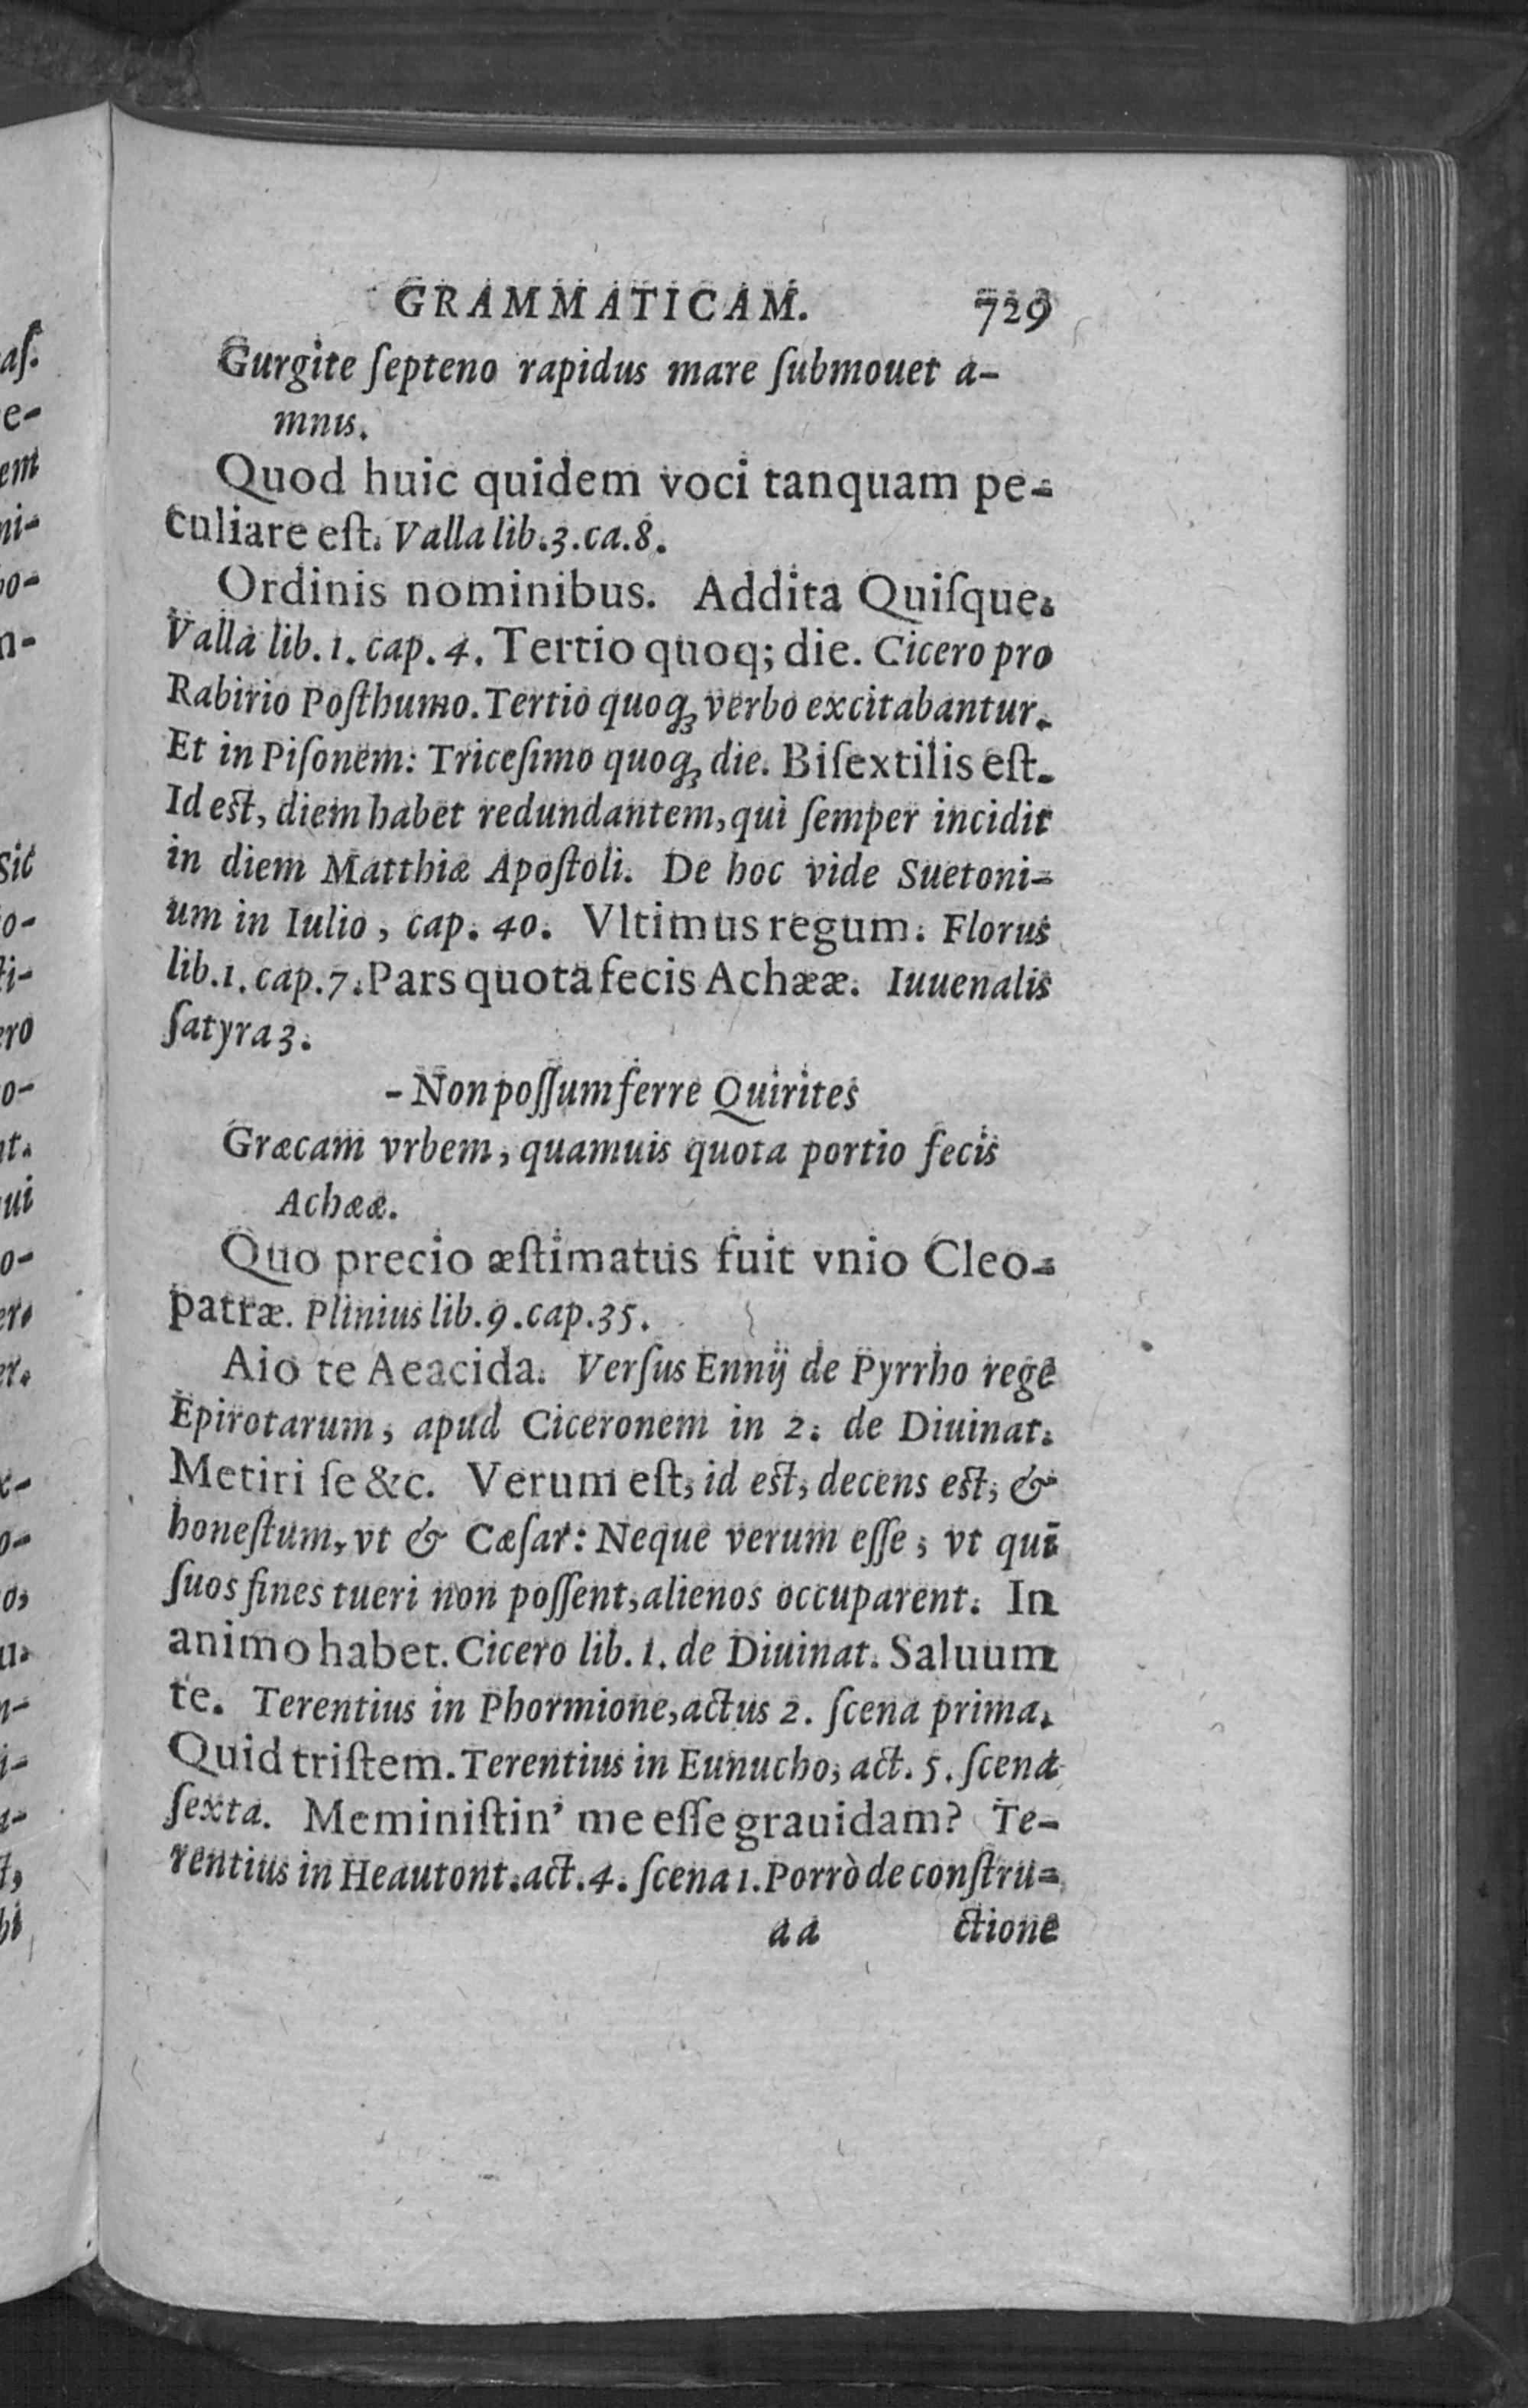 GRAMMATICAM. 729
Gurgite ſepteno rapidus mare ſubmouet a-
mnis.
Quod huic quidem voci tanquam pe-
culiare eſt. Valla lib.3.ca.8.
Ordinis nominibus. Addita Quiſque.
Valla lib.1.cap.4. Tertio quoq; die. Cicero pro
Rabirio Poſthumo. Tertio quoq; verbo excitabantur.
Et in Piſonem: Triceſimo quoq; die. Biſextilis eſt.
Id eſt, diem habet redundantem, qui ſemper incidit
in diem Matthiæ Apoſtoli. De hoc vide Suetoni-
um in Iulio, cap. 40. Vltimus regum. Florus
lib.1.cap.7. Pars quota fecis Achææ. Iuuenalis
ſatyra 3.
- Non poſſum ferre Quirites
Græcam vrbem, quamuis quota portio fecis
Achææ.
Quo precio æſtimatus fuit vnio Cleo-
patræ. Plinius lib.9.cap.35.
Aio te Aeacida. Verſus Ennij de Pyrrho rege
Epirotarum, apud Ciceronem in 2. de Diuinat.
Metiri ſe &c. Verum eſt, id eſt, decens eſt, &
honeſtum, vt & Cæſar: Neque verum eſſe, vt qui
ſuos fines tueri non poſſent, alienos occuparent. In
animo habet. Cicero lib. 1. de Diuinat. Saluum
te. Terentius in Phormione, actus 2. ſcena prima.
Quid triſtem. Terentius in Eunucho, act. 5. ſcena
ſexta. Meminiſtin' me eſſe grauidam? Te-
rentius in Heautont. act. 4. ſcena 1. Porrò de conſtru-
aa ctione